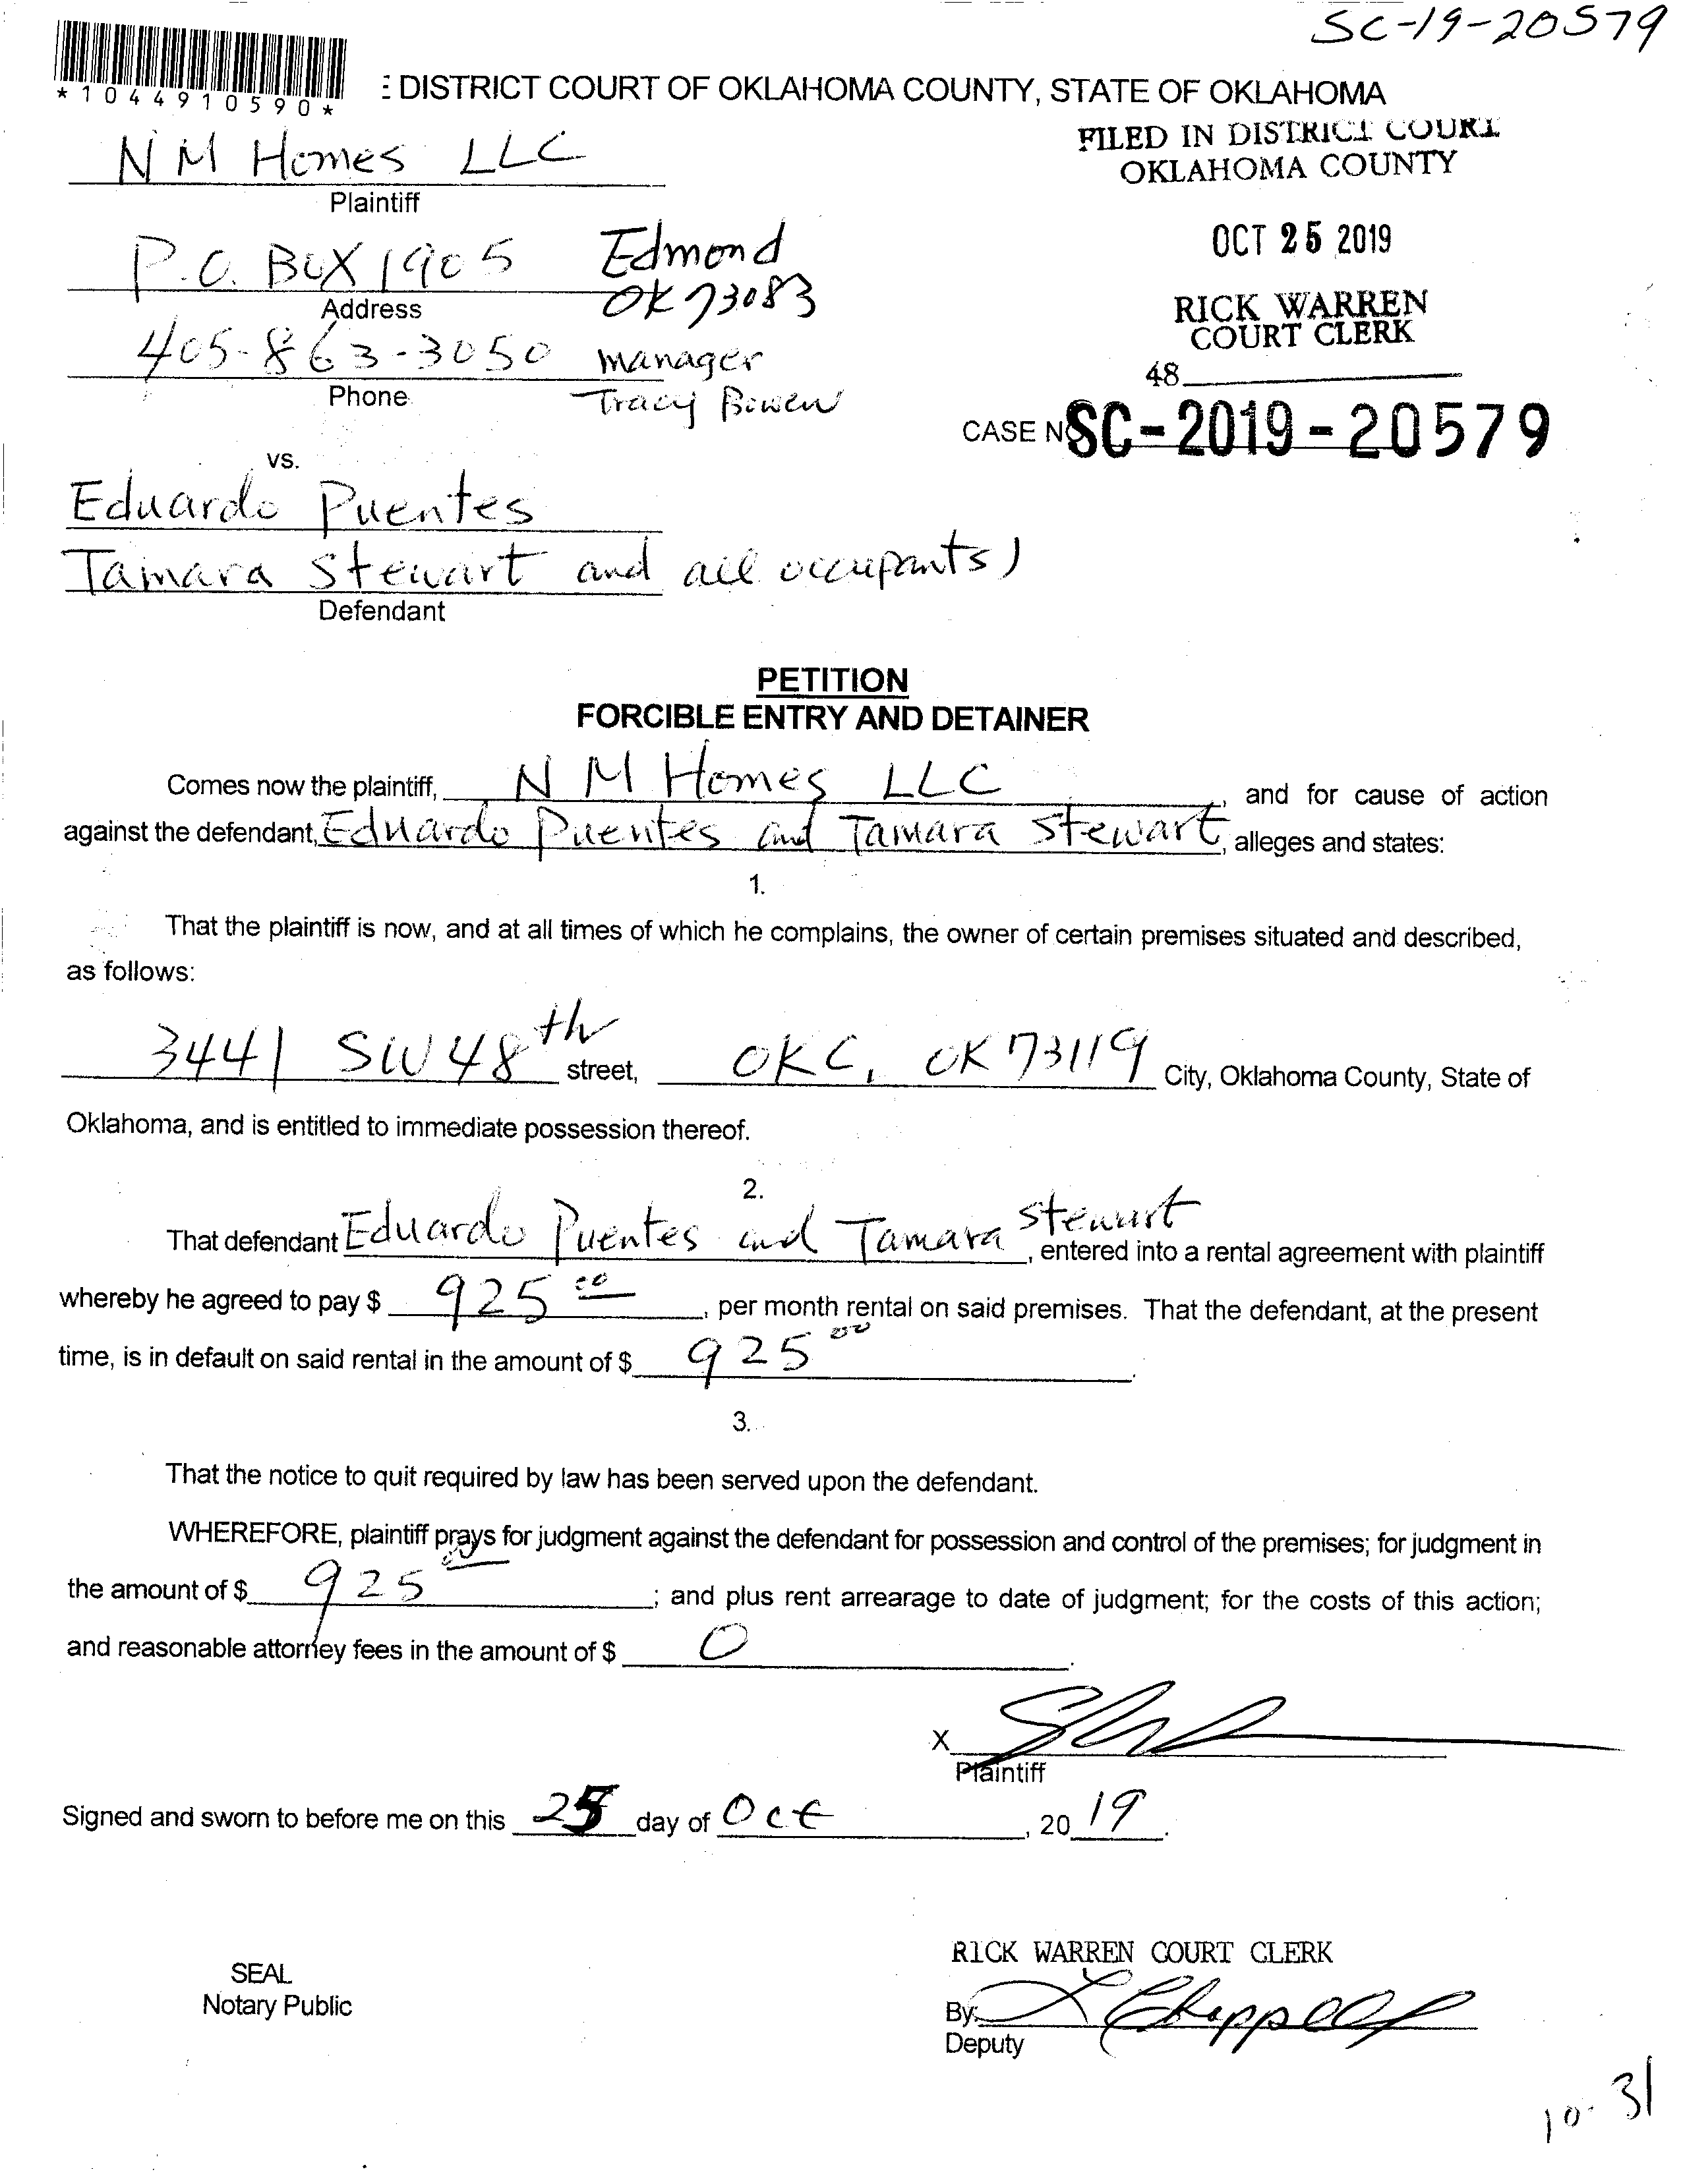 SC-19-20579
*1044910590*
: DISTRICT COURT OF OKLAHOMA COUNTY, STATE OF OKLAHOMA
FILED IN DISTRICT COURT
OKLAHOMA COUNTY
N M Homes LLC
Plaintiff
P.O. Box 1905 Edmond
OK 73083
Address
OCT 25 2019
RICK WARREN
COURT CLERK
405-863-3050 manager
Phone Tracy Bowen
48
CASE NO SC-2019-20579
vs.
Eduardo Puentes
Tamara Stewart and all occupants)
Defendant
PETITION
FORCIBLE ENTRY AND DETAINER
Comes now the plaintiff, N M Homes LLC, and for cause of action
against the defendant, Eduardo Puentes and Tamara Stewart, alleges and states:
1.
That the plaintiff is now, and at all times of which he complains, the owner of certain premises situated and described,
as follows:
3441 SW 48th street, OKC, OK 73119 City, Oklahoma County, State of
Oklahoma, and is entitled to immediate possession thereof.
2.
That defendant Eduardo Puentes and Tamara Stewart, entered into a rental agreement with plaintiff
whereby he agreed to pay $ 925 00, per month rental on said premises. That the defendant, at the present
time, is in default on said rental in the amount of $ 925 00.
3.
That the notice to quit required by law has been served upon the defendant.
WHEREFORE, plaintiff prays for judgment against the defendant for possession and control of the premises; for judgment in
the amount of $ 925 00; and plus rent arrearage to date of judgment; for the costs of this action;
and reasonable attorney fees in the amount of $ 0.
X
Plaintiff
Signed and sworn to before me on this 25 day of Oct, 20 19.
RICK WARREN COURT CLERK
SEAL
Notary Public
By: L Chappell
Deputy
10-31